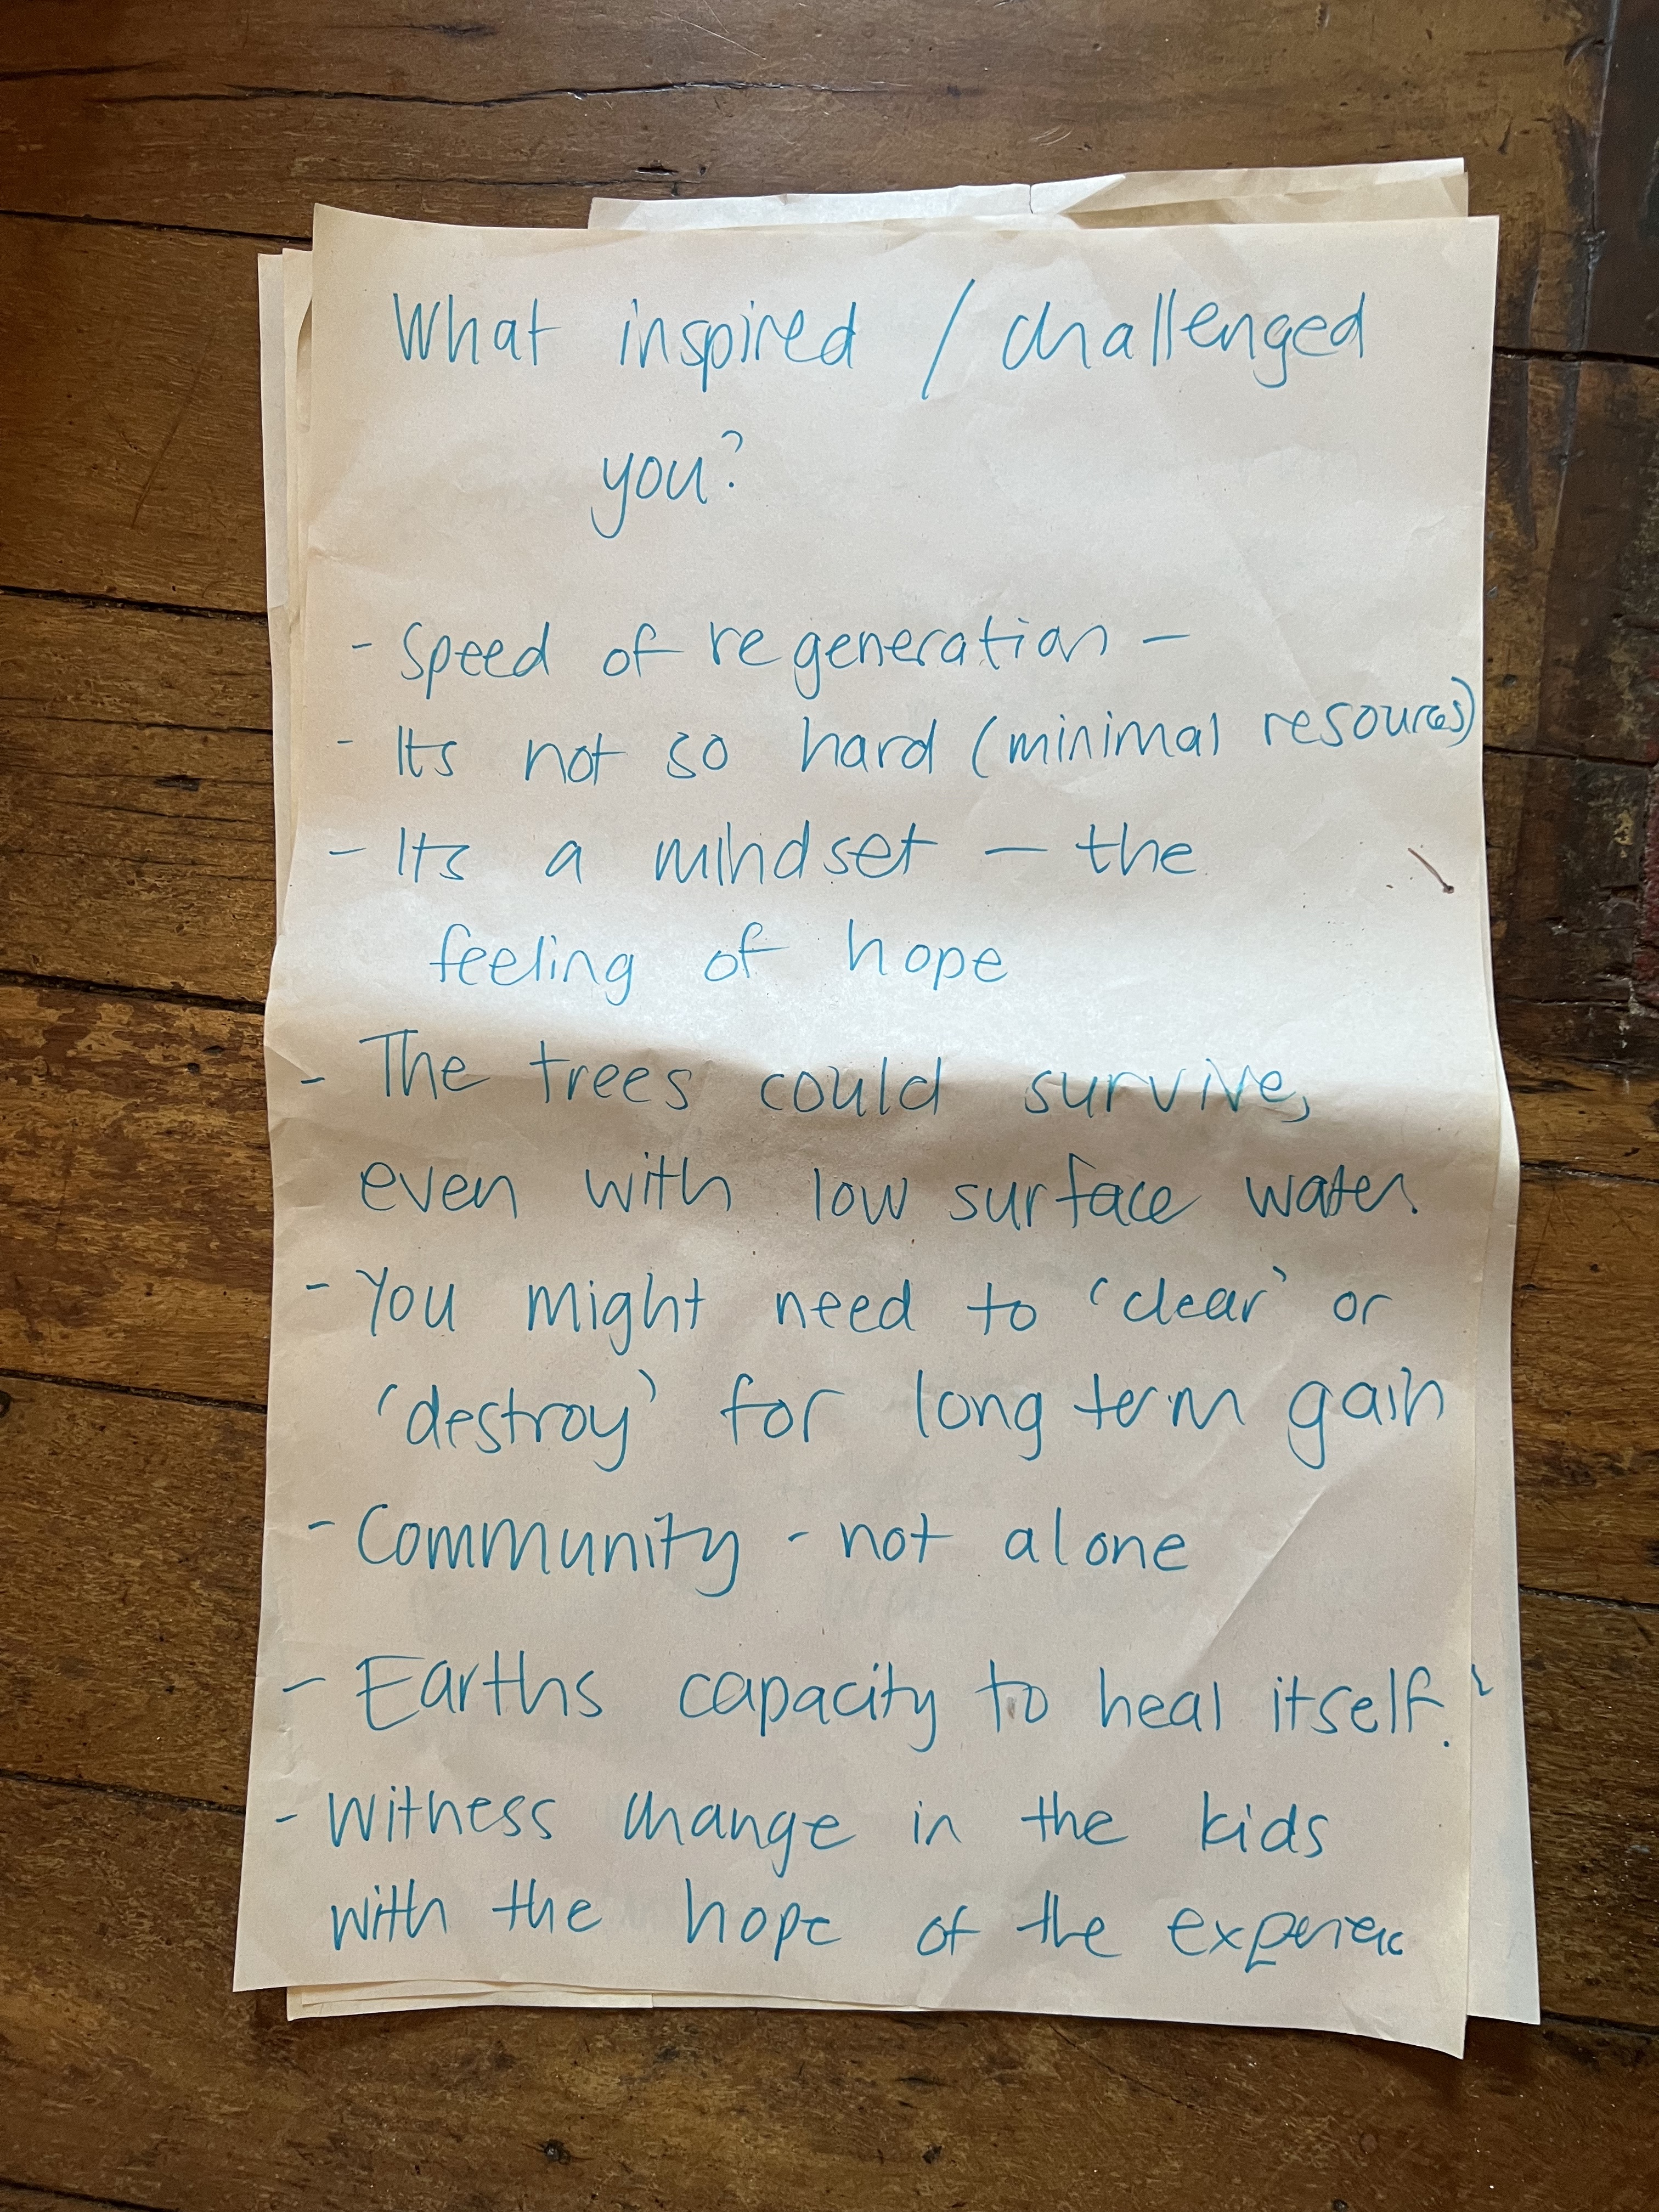 What inspired / challenged
you?
- Speed of regeneration -
- Its not so hard (minimal resources)
- Its a mindset - the
feeling of hope
- The trees could survive,
even with low surface water.
- You might need to 'clear' or
'destroy' for long term gain
- Community - not alone
- Earths capacity to heal itself.
- Witness change in the kids
with the hope of the experience